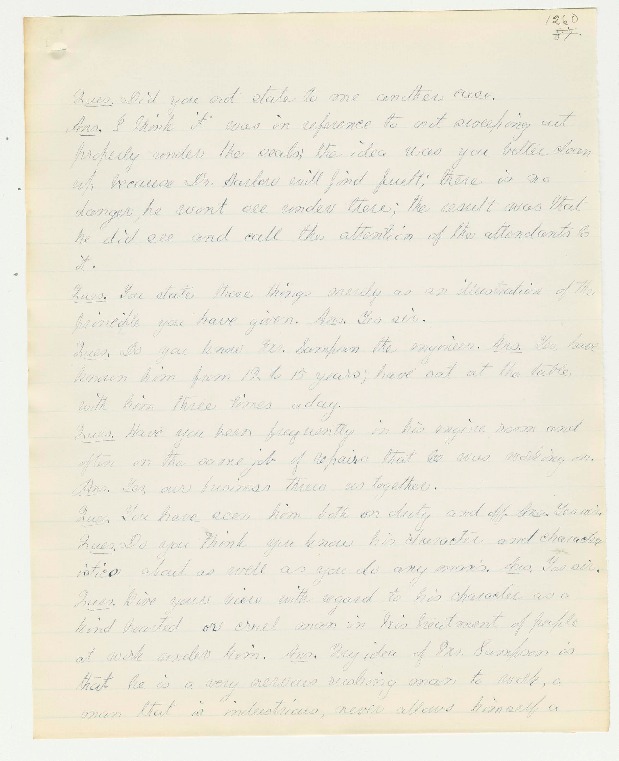 1260
57
Ques. Did you not state to me another case.
Ans. I think it was in reference to not sweeping out
properly under the the idea was you better down
up because Dr. Harlow will find fault; there is no
danger, he wont see under there; the result was that
he did see and call the attention of the attendants to
it.
Ques. You state these things merely as an illustration of the
principle you have given. Ans. Yes sir.
Ques. Do you know Mr. Sampson the engineer. Ans. Yes, have
known him from 12 to 15 years; have eat at the table
with him three times a day.
Ques. Have you been frequently in his engine room and
often on the same job of repairs that he was working on.
Ans. Yes, our business threw us together.
Ques. You have seen him both on duty and off. Ans. Yes sir.
Ques. Do you think you know his character and character
istics about as well as you do any man's. Ans. Yes sir.
Ques. Give your view with regard to his character as a
kind hearted or cruel man in his treatment of people
at work under him. Ans. My idea of Mr. Sampson is
that he is a very nervous man to work, a
man that is industrious, never allows himself a